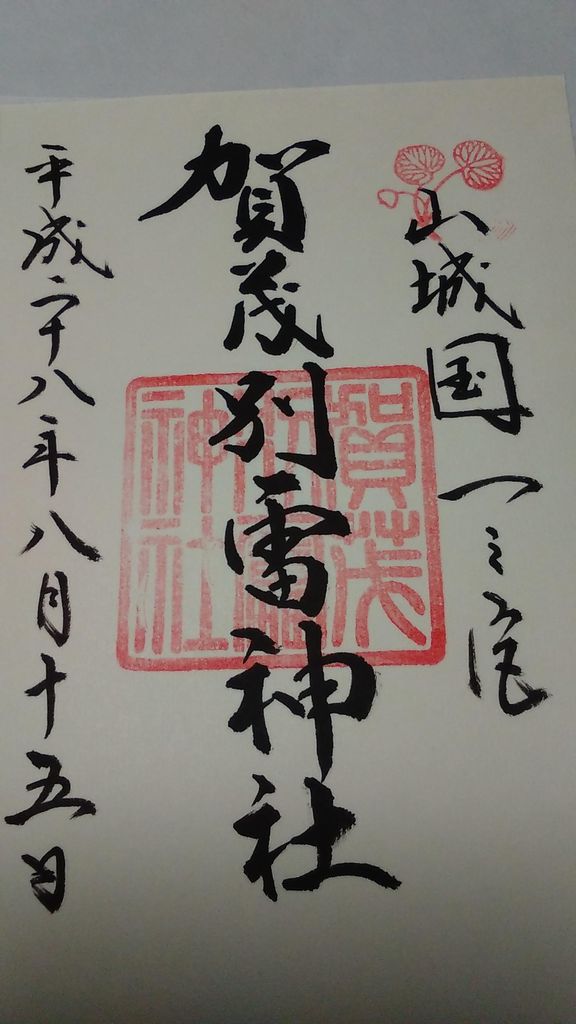 山城国一之宮
賀茂別雷神社
平成二十八年八月十五日
賀茂
別雷
神社